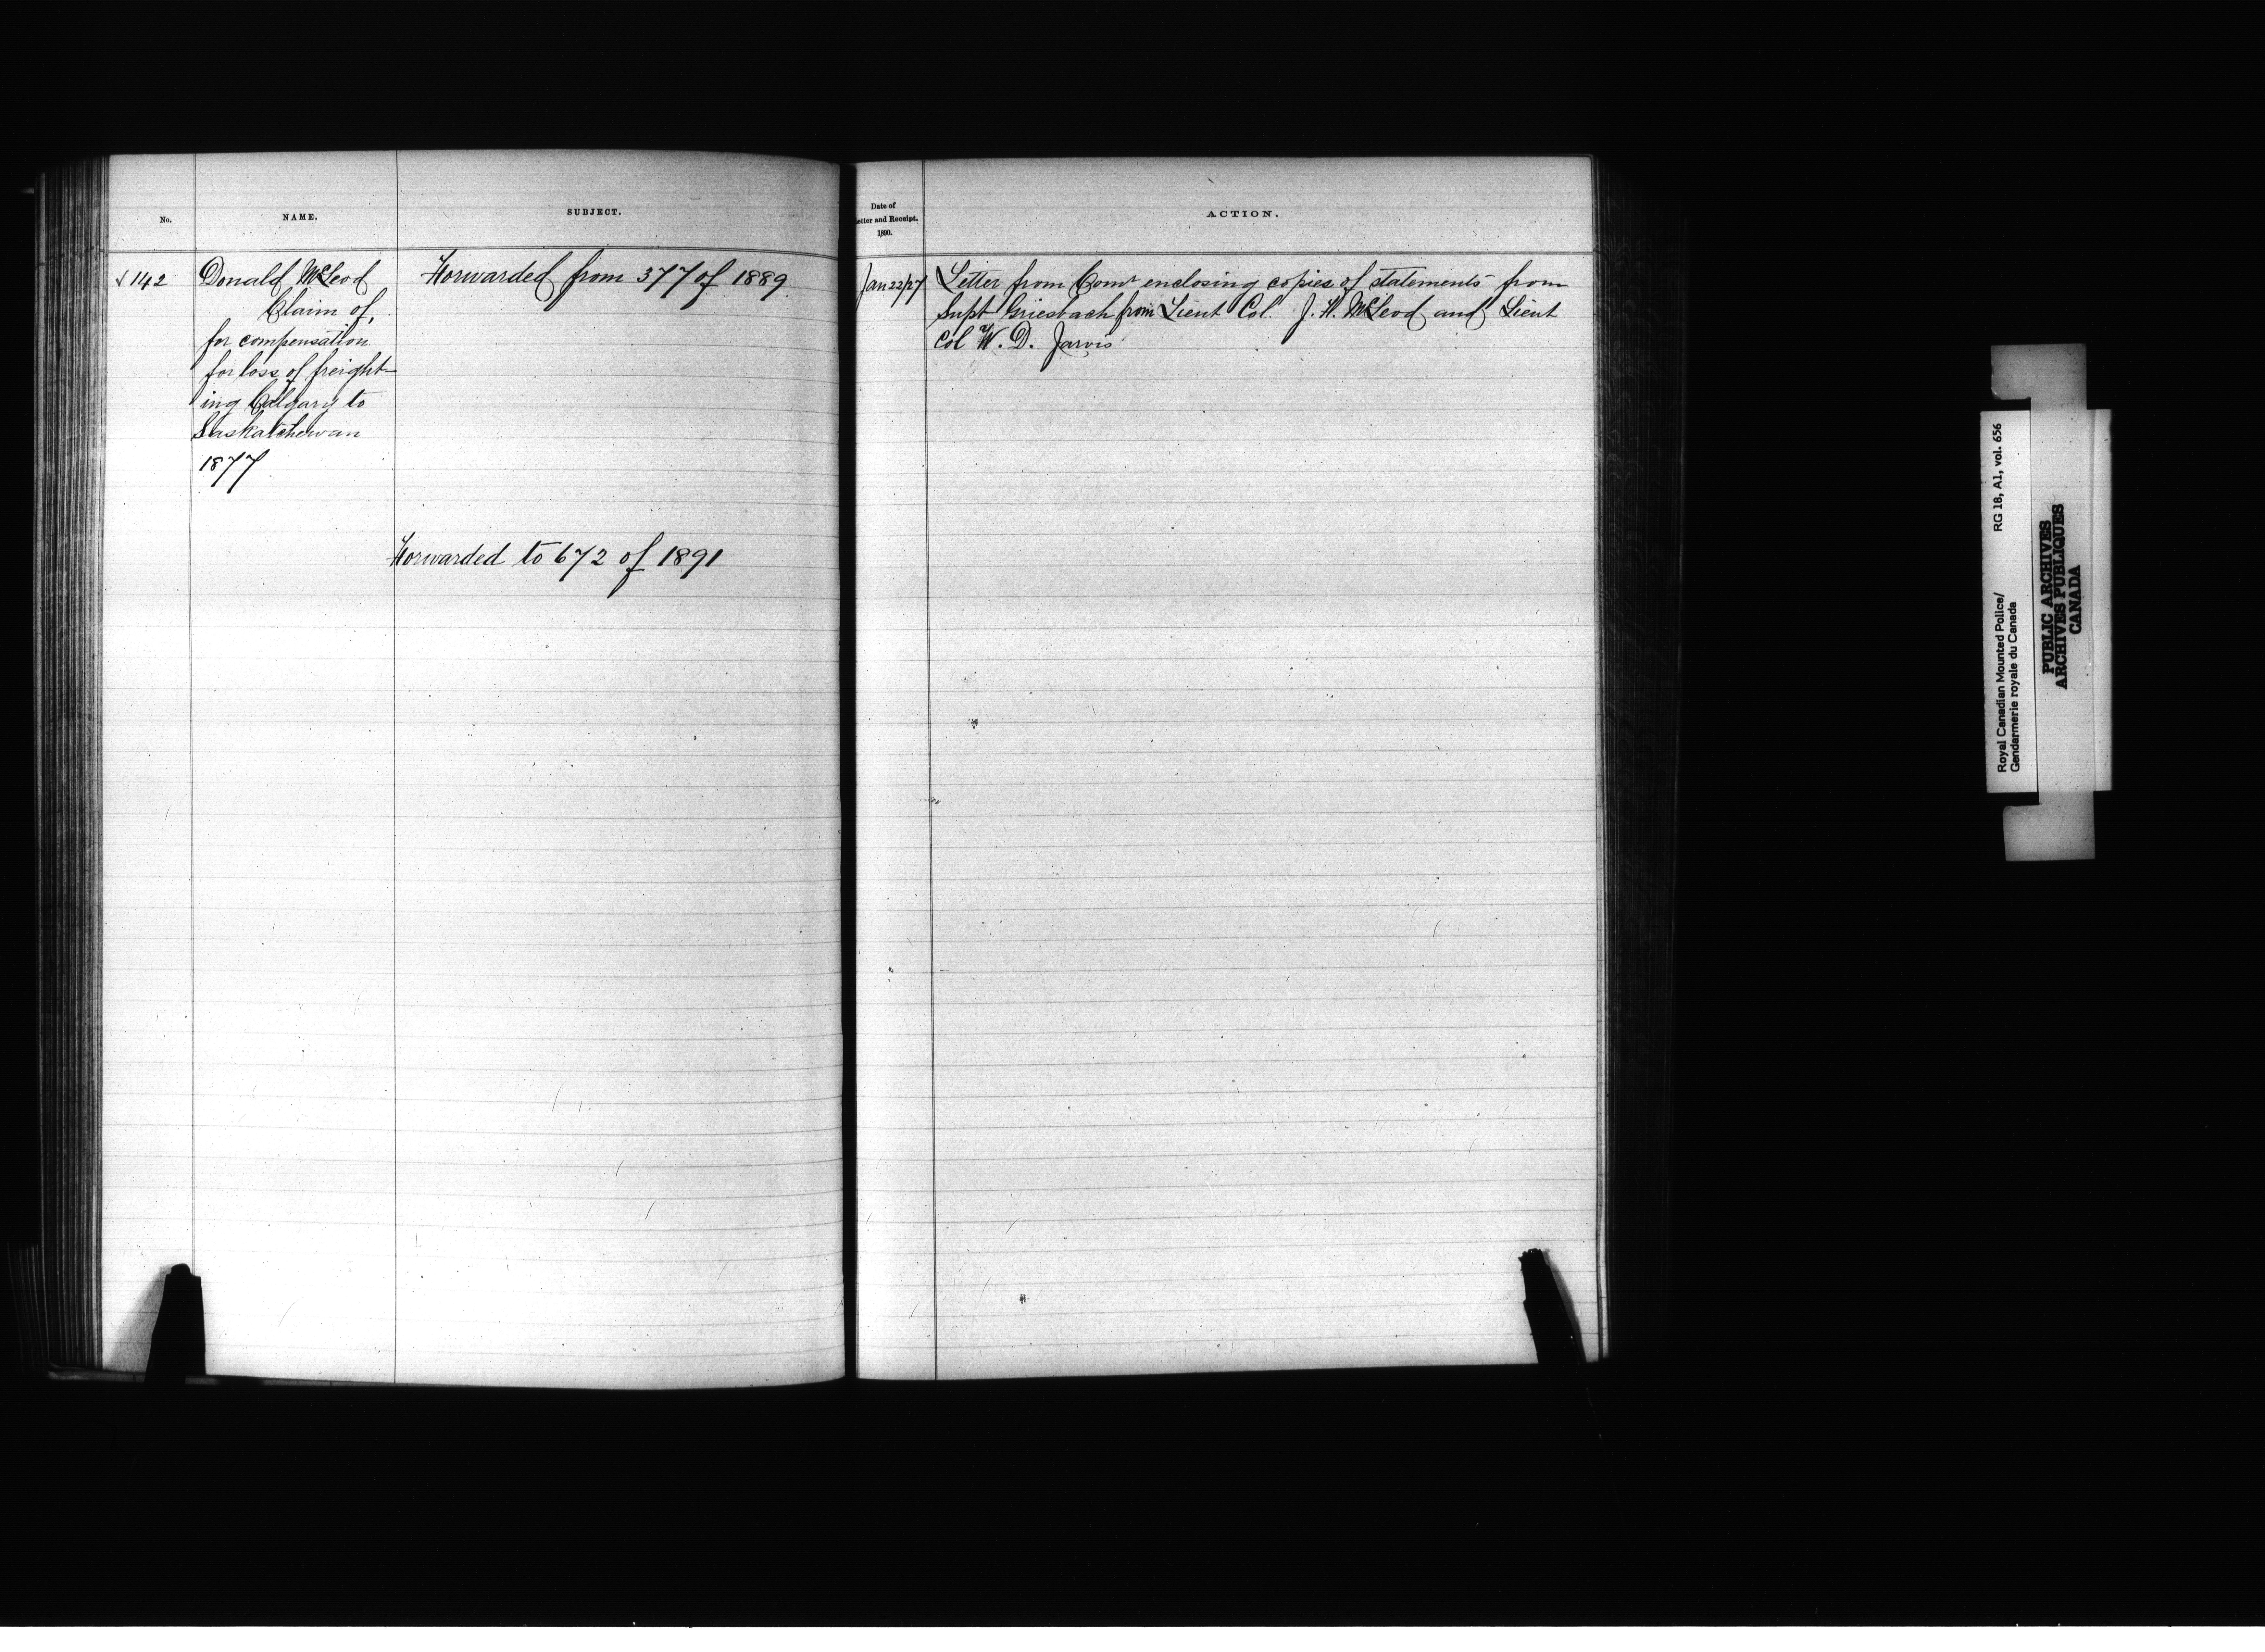 No.
NAME.
SUBJECT.
142
Donald McLeod
Claim of,
for compensation
for loss of freight-
ing Calgary to
Saskatchewan
1877
Forwarded from 377 of 1889
Forwarded to 672 of 1891
Date of
etter and Receipt.
1890.
ACTION.
Jan 22/27
Letter from Comr enclosing copies of statements from
Supt Griesbach from Lieut Col. J. F. McLeod and Lieut
Col W. D. Jarvis
Royal Canadian Mounted Police/ RG 18, A1, vol. 656
Gendarmerie royale du Canada
PUBLIC ARCHIVES
ARCHIVES PUBLIQUES
CANADA